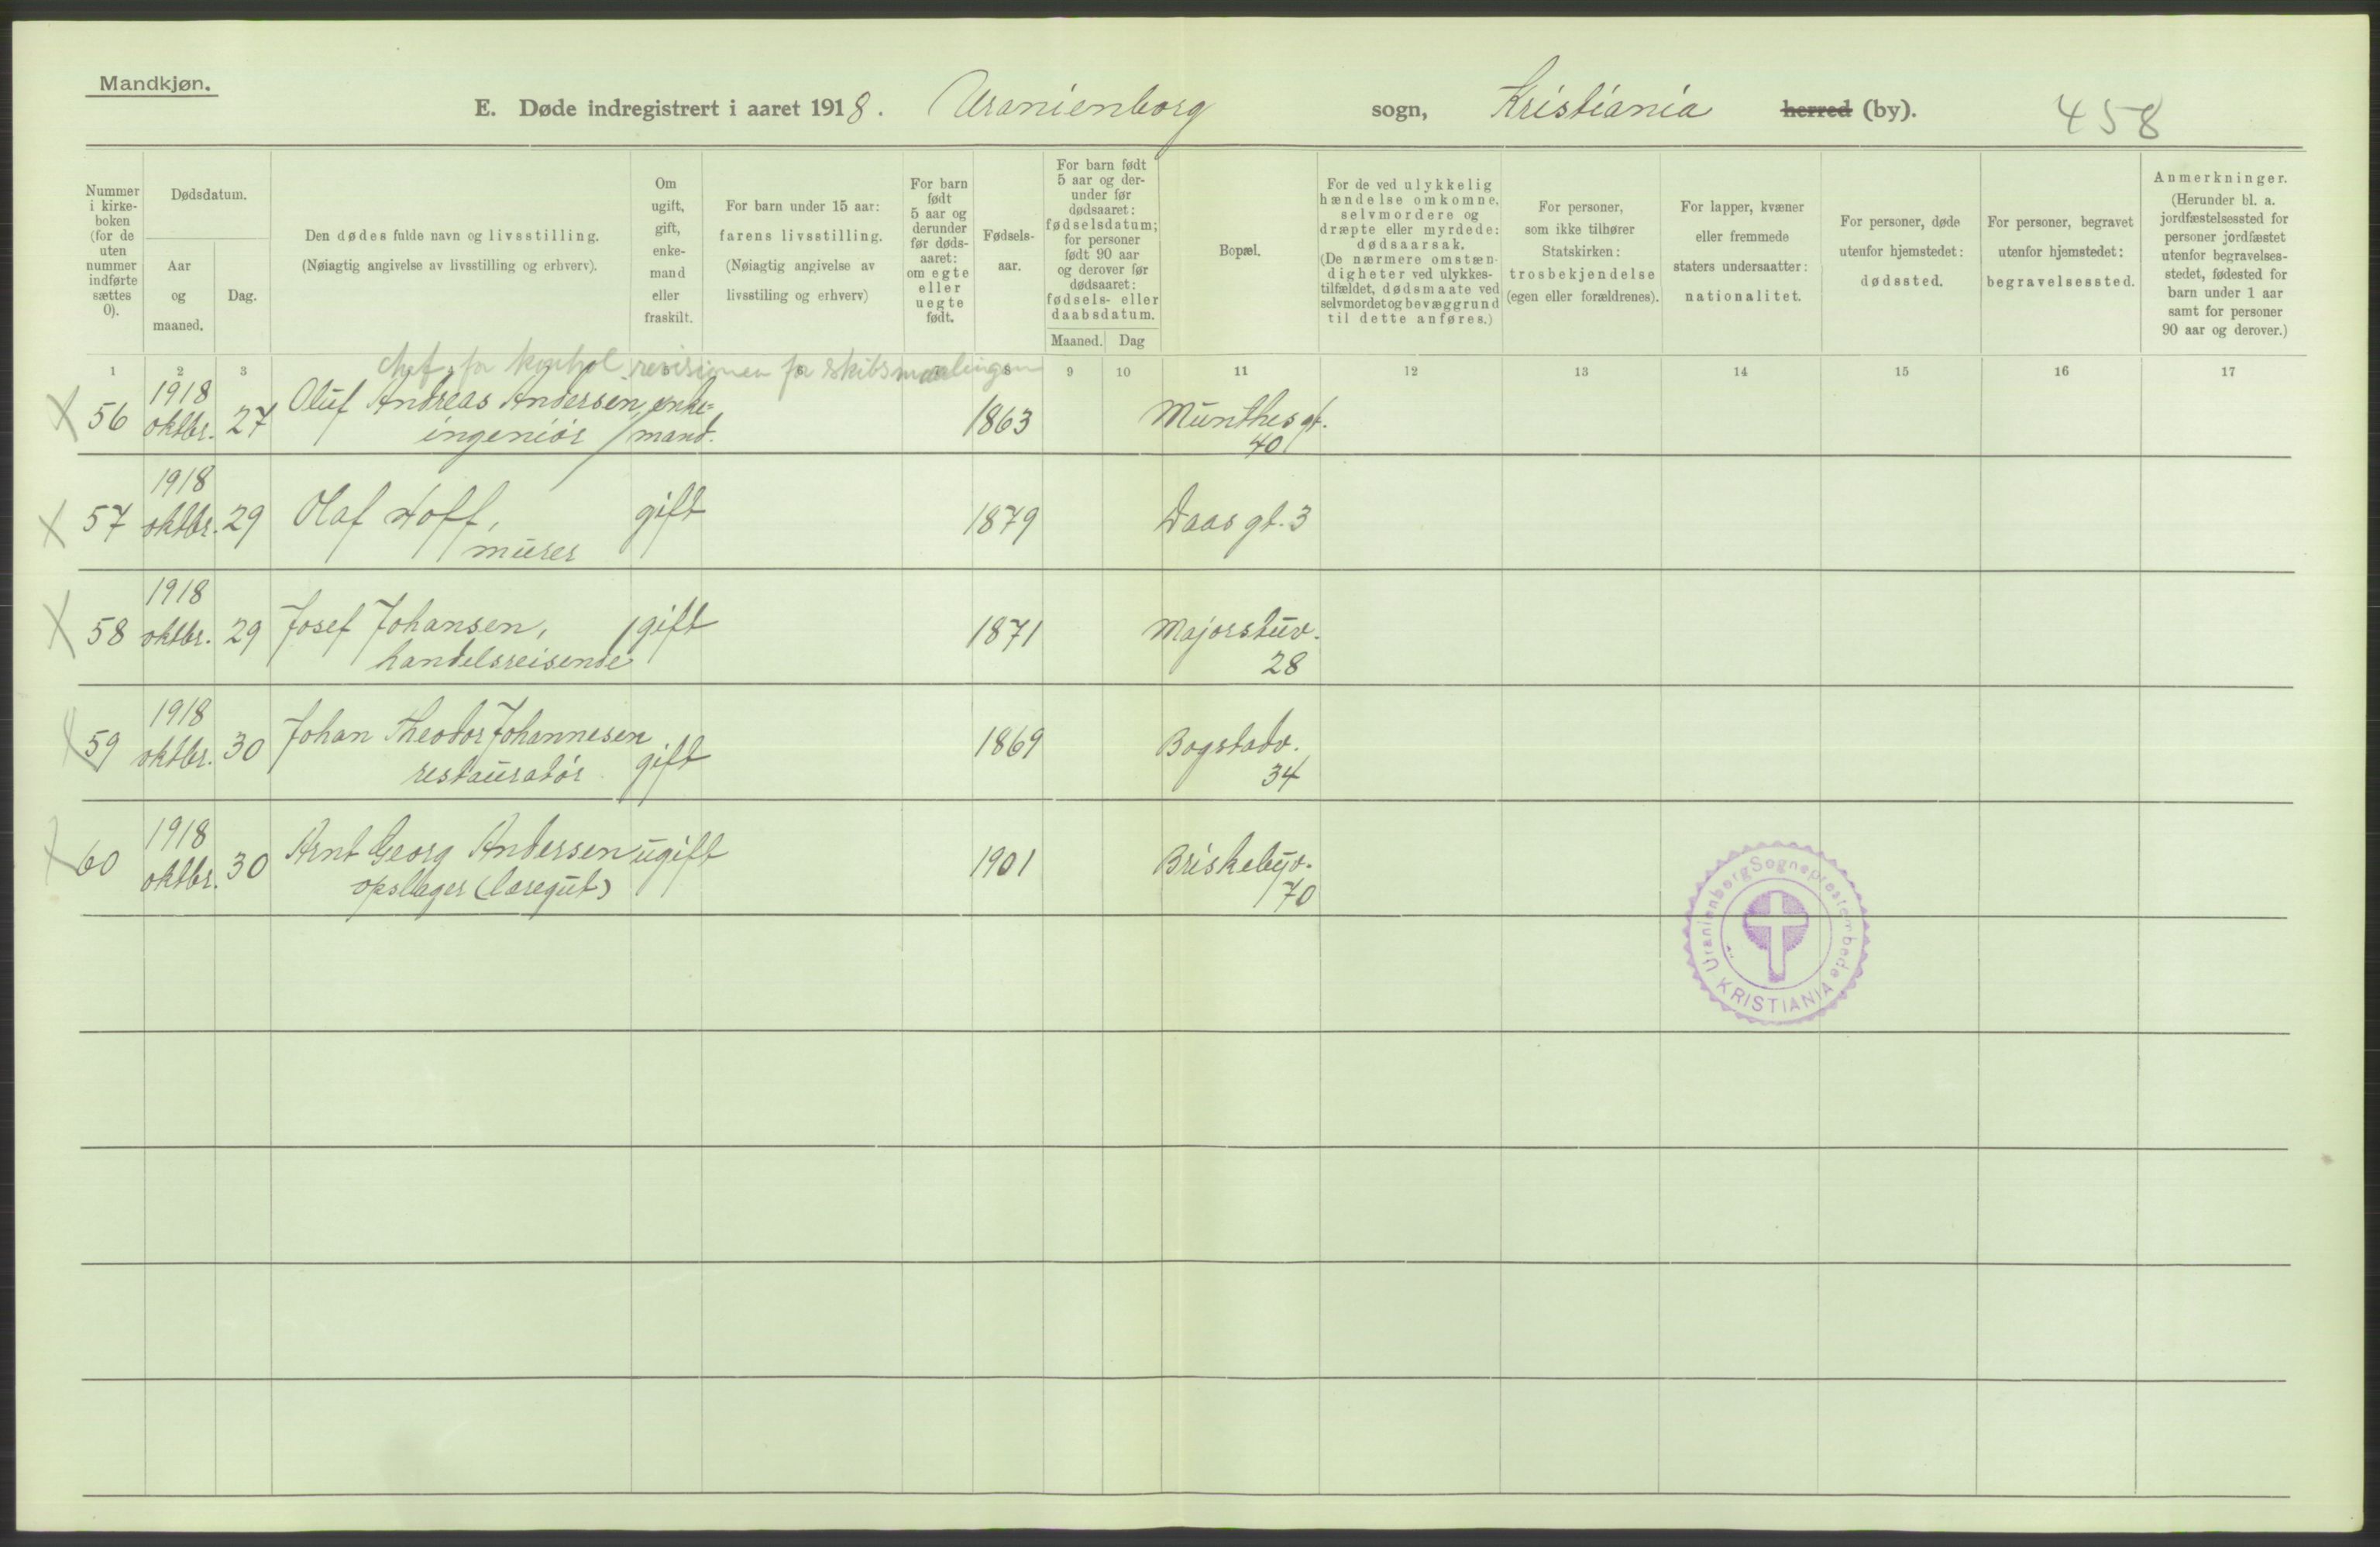 Mandkjøn.
E. Døde indregistrert i aaret 1918. Uranienborg sogn, Kristiania herred (by). 458
Nummer i kirke-boken (for de uten nummer indførte sættes 0).
Dødsdatum.
Aar og maaned.
Dag.
Den dødes fulde navn og livsstilling.
(Nøiagtig angivelse av livsstilling og erhverv).
Om ugift, gift, enke-mand eller fraskilt.
For barn under 15 aar: farens livsstilling.
(Nøiagtig angivelse av livsstiling og erhverv)
For barn født 5 aar og derunder før døds-aaret: om egte eller uegte født.
Fødsels-aar.
For barn født 5 aar og der-under før dødsaaret: fødselsdatum; for personer født 90 aar og derover før dødsaaret: fødsels- eller daabsdatum.
Maaned. Dag
Bopæl.
For de ved ulykkelig hændelse omkomne, selvmordere og dræpte eller myrdede: dødsaarsak.
(De nærmere omstæn-digheter ved ulykkes-tilfældet, dødsmaate ved selvmordet og bevæggrund til dette anføres.)
For personer, som ikke tilhører Statskirken: trosbekjendelse (egen eller forældrenes).
For lapper, kvæner eller fremmede staters undersaatter: nationalitet.
For personer, døde utenfor hjemstedet: dødssted.
For personer, begravet utenfor hjemstedet: begravelsessted.
Anmerkninger.
(Herunder bl. a. jordfæstelsessted for personer jordfæstet utenfor begravelses-stedet, fødested for barn under 1 aar samt for personer 90 aar og derover.)
1 2 3 8 9 10 11 12 13 14 15 16 17
chef for kontrol revisionen for skibsmaalingen
56 1918 oktbr. 27 Oluf Andreas Andersen, ingeniör enke=mand. 1863 Munthesgt. 40
57 1918 oktbr. 29 Olaf Hoff, murer gift 1879 Daasgt. 3
58 1918 oktbr. 29 Josef Johansen, handelsreisende gift 1871 Majorstuv. 28
59 1918 oktbr. 30 Johan Theodor Johannesen restauratör gift 1869 Bogstadv. 34
60 1918 oktbr. 30 Arnt Georg Andersen opslager (læregut) ugift 1901 Briskebyv. 70
Uranienborg Sogneprestembede KRISTIANIA